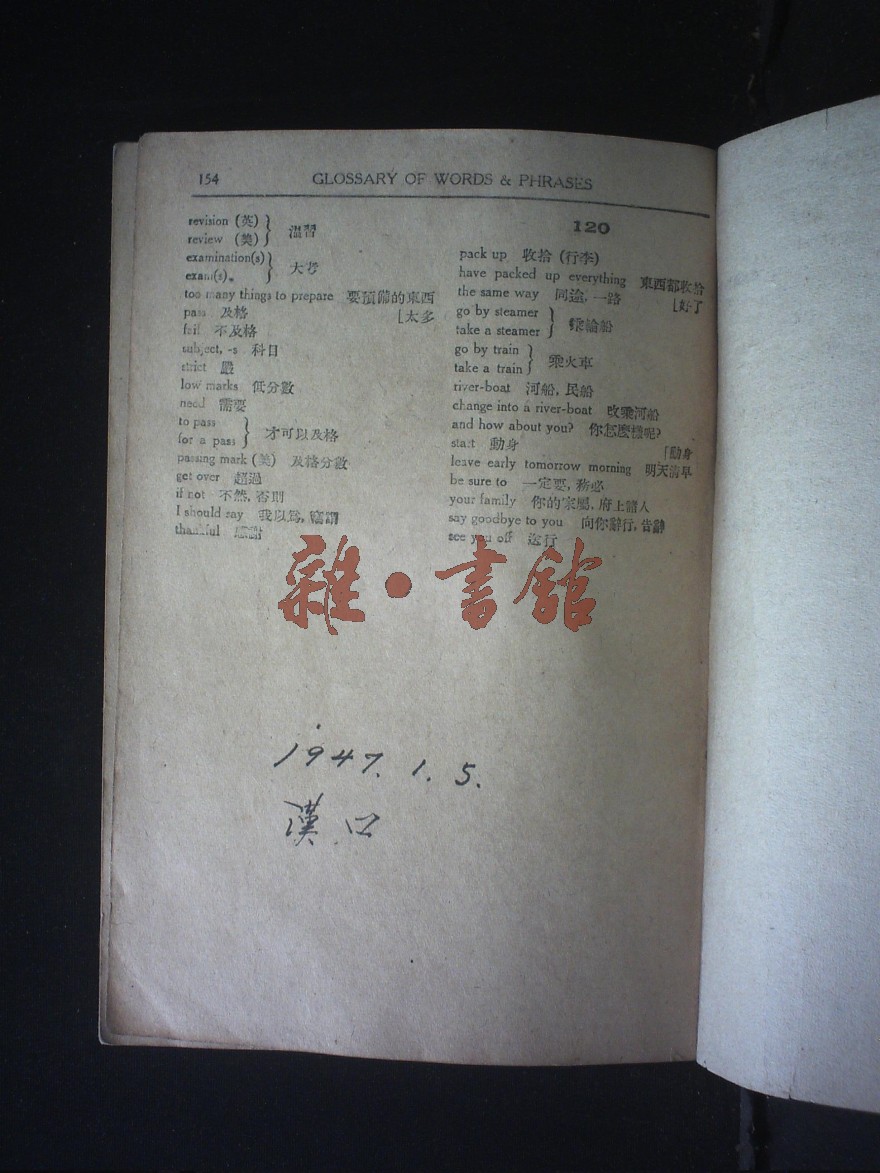 154 GLOSSARY OF WORDS & PHRASES
revision (英)
review (美) } 溫習
examination(s)
exam(s). } 大考
too many things to prepare 要預備的東西
pass 及格 [太多
fail 不及格
subject, -s 科目
strict 嚴
low marks 低分數
need 需要
to pass
for a pass } 才可以及格
passing mark (美) 及格分數
get over 超過
if not 不然, 否則
I should say 我以爲, 竊謂
thankful 感謝
120
pack up 收拾 (行李)
have packed up everything 東西都收拾
the same way 同途, 一路 [好了
go by steamer
take a steamer } 乘輪船
go by train
take a train } 乘火車
river-boat 河船, 民船
change into a river-boat 改乘河船
and how about you? 你怎麼樣呢?
start 動身 [動身
leave early tomorrow morning 明天清早
be sure to 一定要, 務必
your family 你的家屬, 府上諸人
say goodbye to you 向你辭行, 告辭
see you off 送行
雜·書館
1947. 1. 5.
漢口